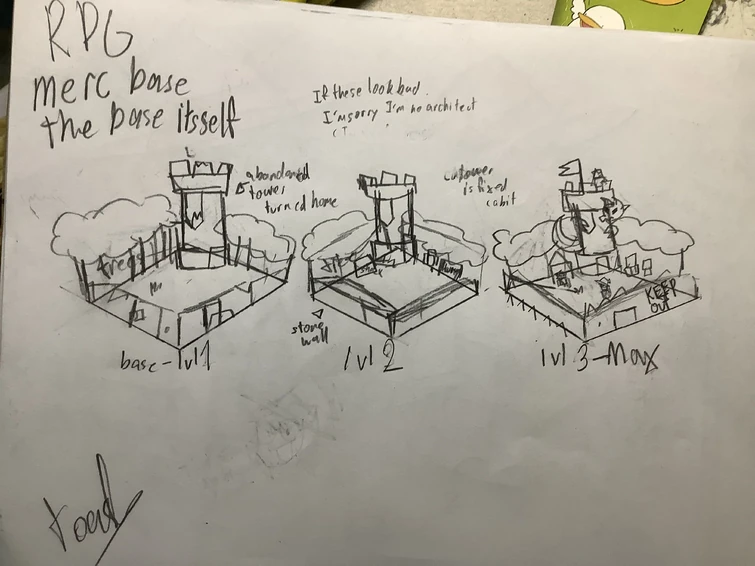 RPG
merc base
the base itsself
If these look bad
I'm sorry I'm no architect
abandoned
tower
turned home
tower
is fixed
a bit
trees
stone
wall
KEEP
OUT
base-lvl 1
lvl 2
lvl 3-Max
toad